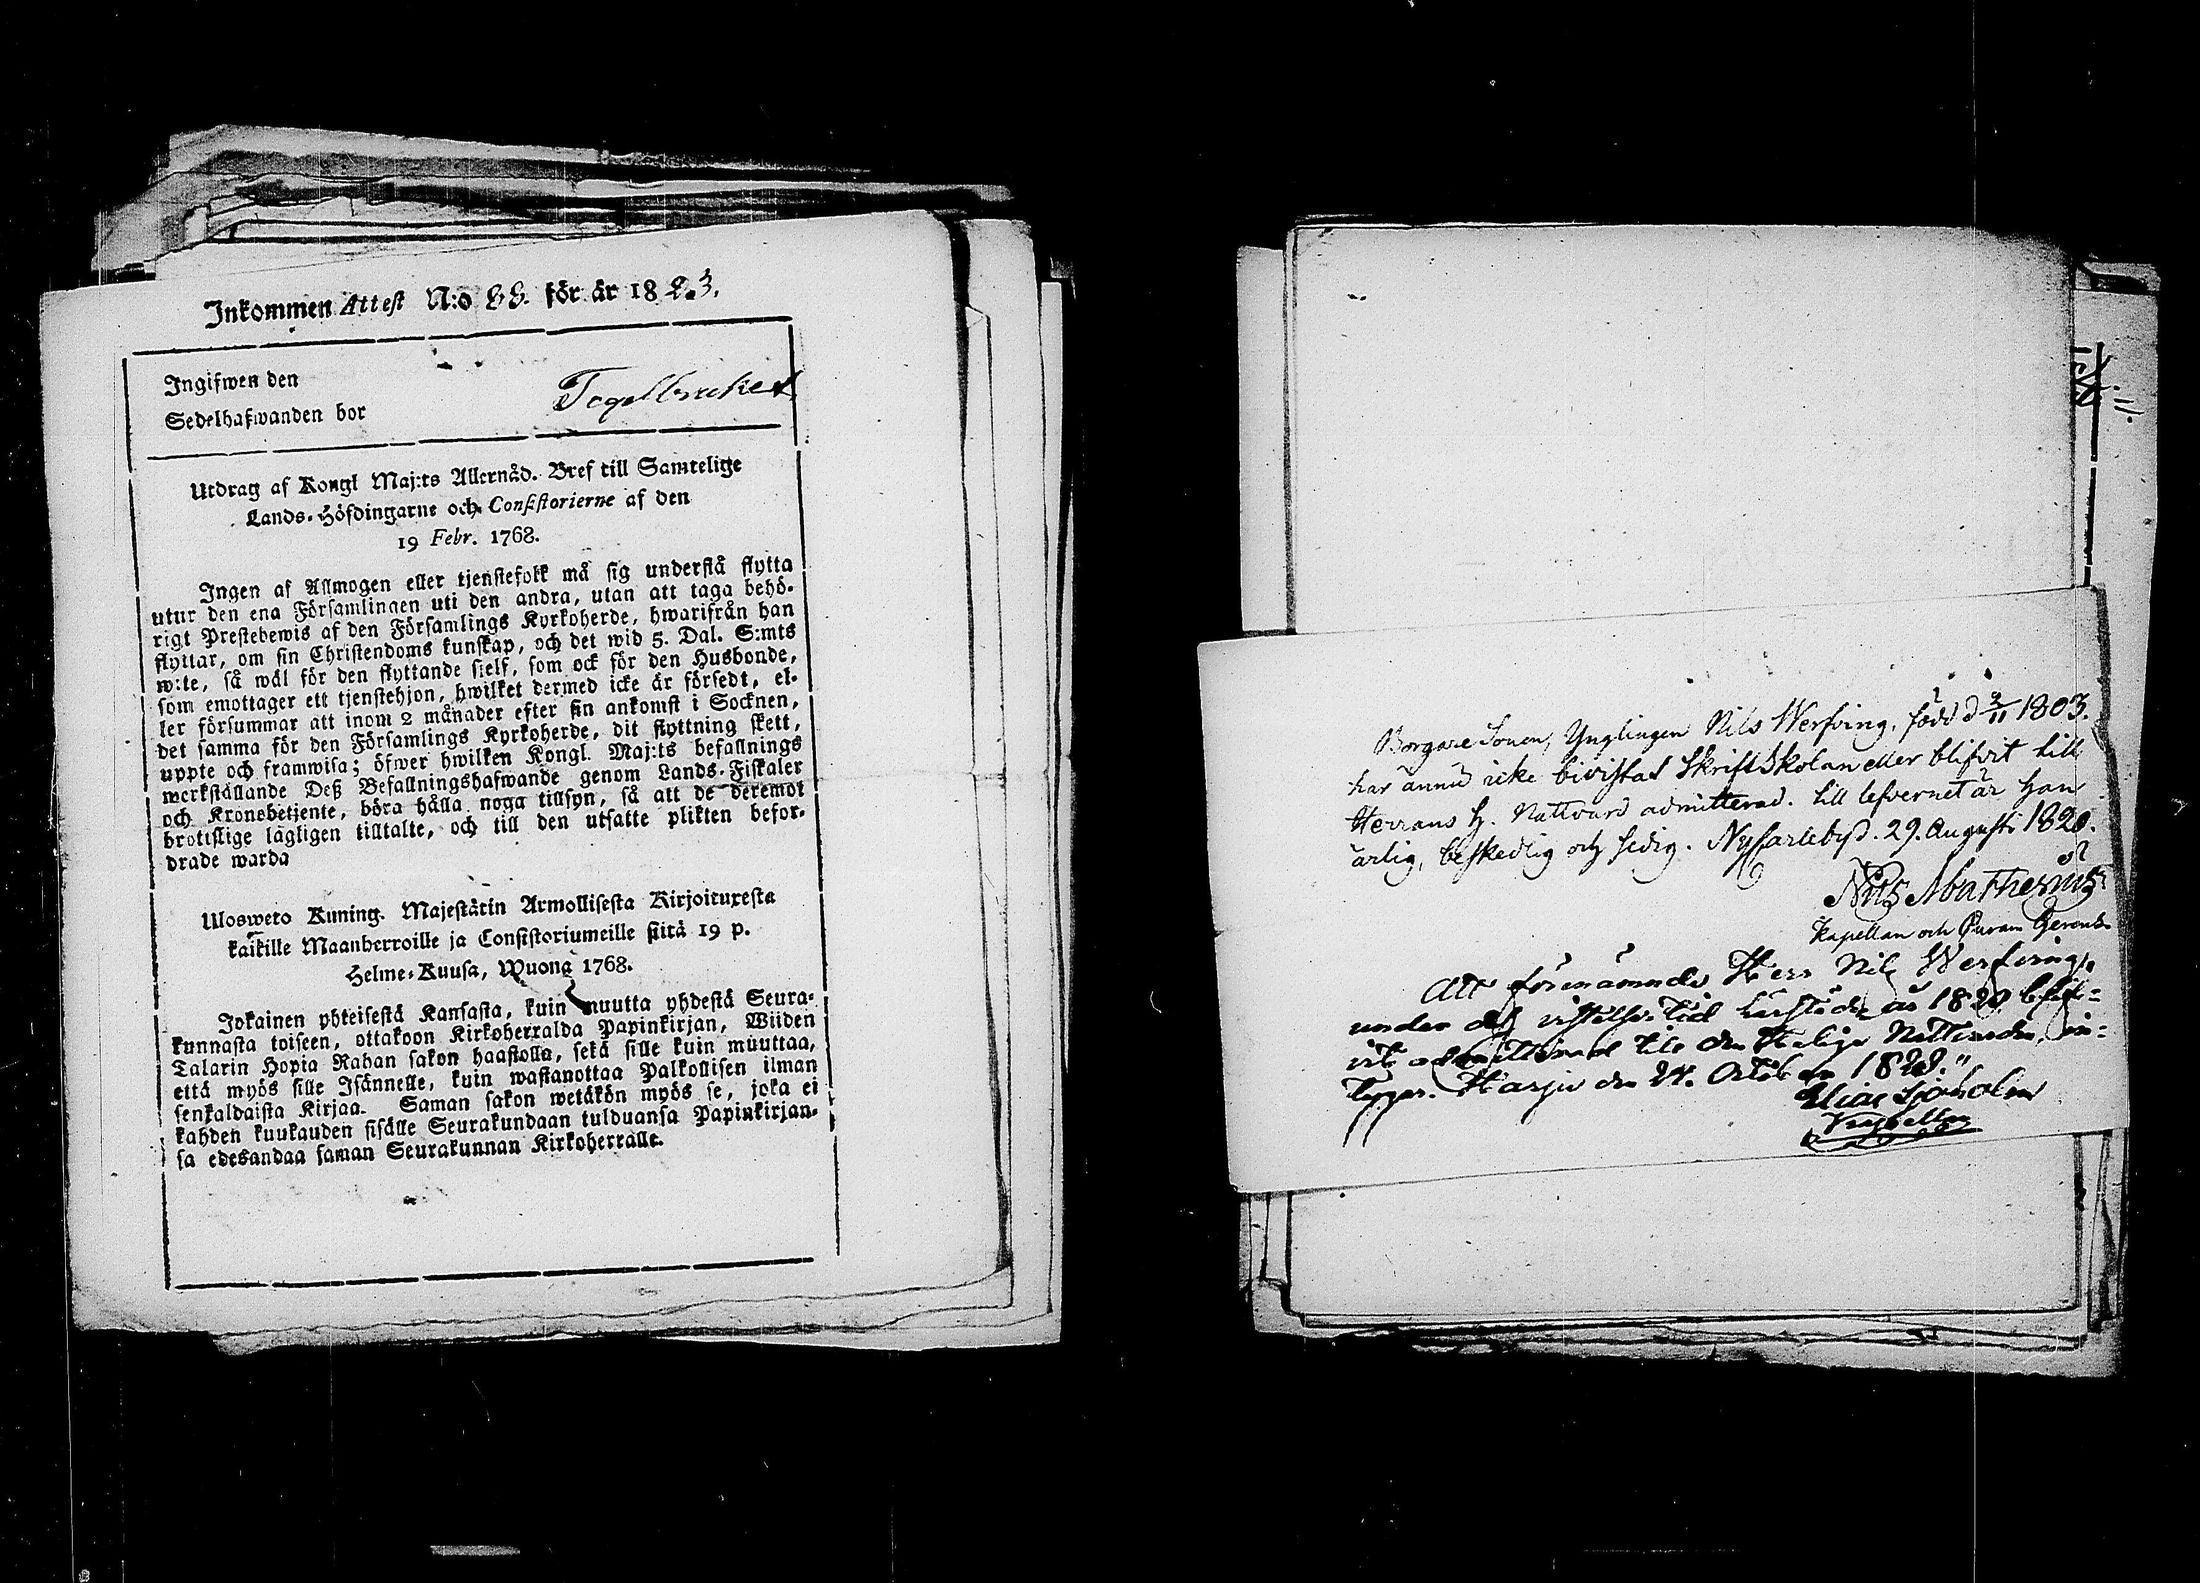 Inkommen Attest N:o 88. för år 1823.
Ingifwen den
Sedelhafwanden bor Tegelbruket
Utdrag af Kongl Maj:ts Allernåd. Bref till Samtelige
Lands-Höfdingarne och Consistorierne af den
19 Febr. 1768.
Ingen af Allmogen eller tjenstefolk må sig understå flytta
utur den ena Församlingen uti den andra, utan att taga behö-
rigt Prestebewis af den Församlings Kyrkoherde, hwarifrån han
flyttar, om sin Christendoms kunskap, och det wid 5. Dal. S:mts
wite, så wäl för den flyttande sielf, som ock för den Husbonde,
som emottager ett tjenstehjon, hwilket dermed icke är försedt, el-
ler försummar att inom 2 månader efter sin ankomst i Socknen,
det samma för den Församlings Kyrkoherde, dit flyttning skett,
uppte och framwisa; öfwer hwilken Kongl. Maj:ts befallnings
werkställande Deß Befallningshafwande genom Lands-Fiskaler
och Kronobetjente, böra hålla noga tillsyn, så att de deremot
brotislige lägligen tilltalte, och till den utsatte plikten befor-
drade warda
Ulosweto Kuning. Majestätin Armollisesta Kirjoituxesta
kaikille Maanherroille ja Consistoriumeille siitä 19 p.
Helme-Kuusa, Wuona 1768.
Jokainen yhteisestä Kansasta, kuin muutta yhdestä Seura-
kunnasta toiseen, ottakoon Kirkoherralda Papinkirjan, Wiiden
Talarin Hopia Rahan sakon haastolla, sekä sille kuin muuttaa,
että myös sille Isännelle, kuin wastanottaa Palkollisen ilman
senkaldaista Kirjaa. Saman sakon wetäkön myös se, joka ei
kahden kuukauden sisälle Seurakundaan tulduansa Papinkirjan-
sa edesandaa saman Seurakunnan Kirkoherralle.
Borgare Sonen, Ynglingen Nils Werfving, född d 3/11 1803.
har ännu icke bivistat Skriftskolan eller blifvit till
Herrans H. Nattvard admitterad. till lefvernet är han
ärlig, beskedlig och sedig. Nycarleby d. 29. Augusti 1820.
Nils
Kapellan och
Att förenämnde Herr Nils Werfving,
under des vistelse-tid härstädes år 1820 blif-
vit admitterad till den Heliga Nattvarden, in-
tygar. Harju den 24. October
Elias Sjöholm
Kapellan